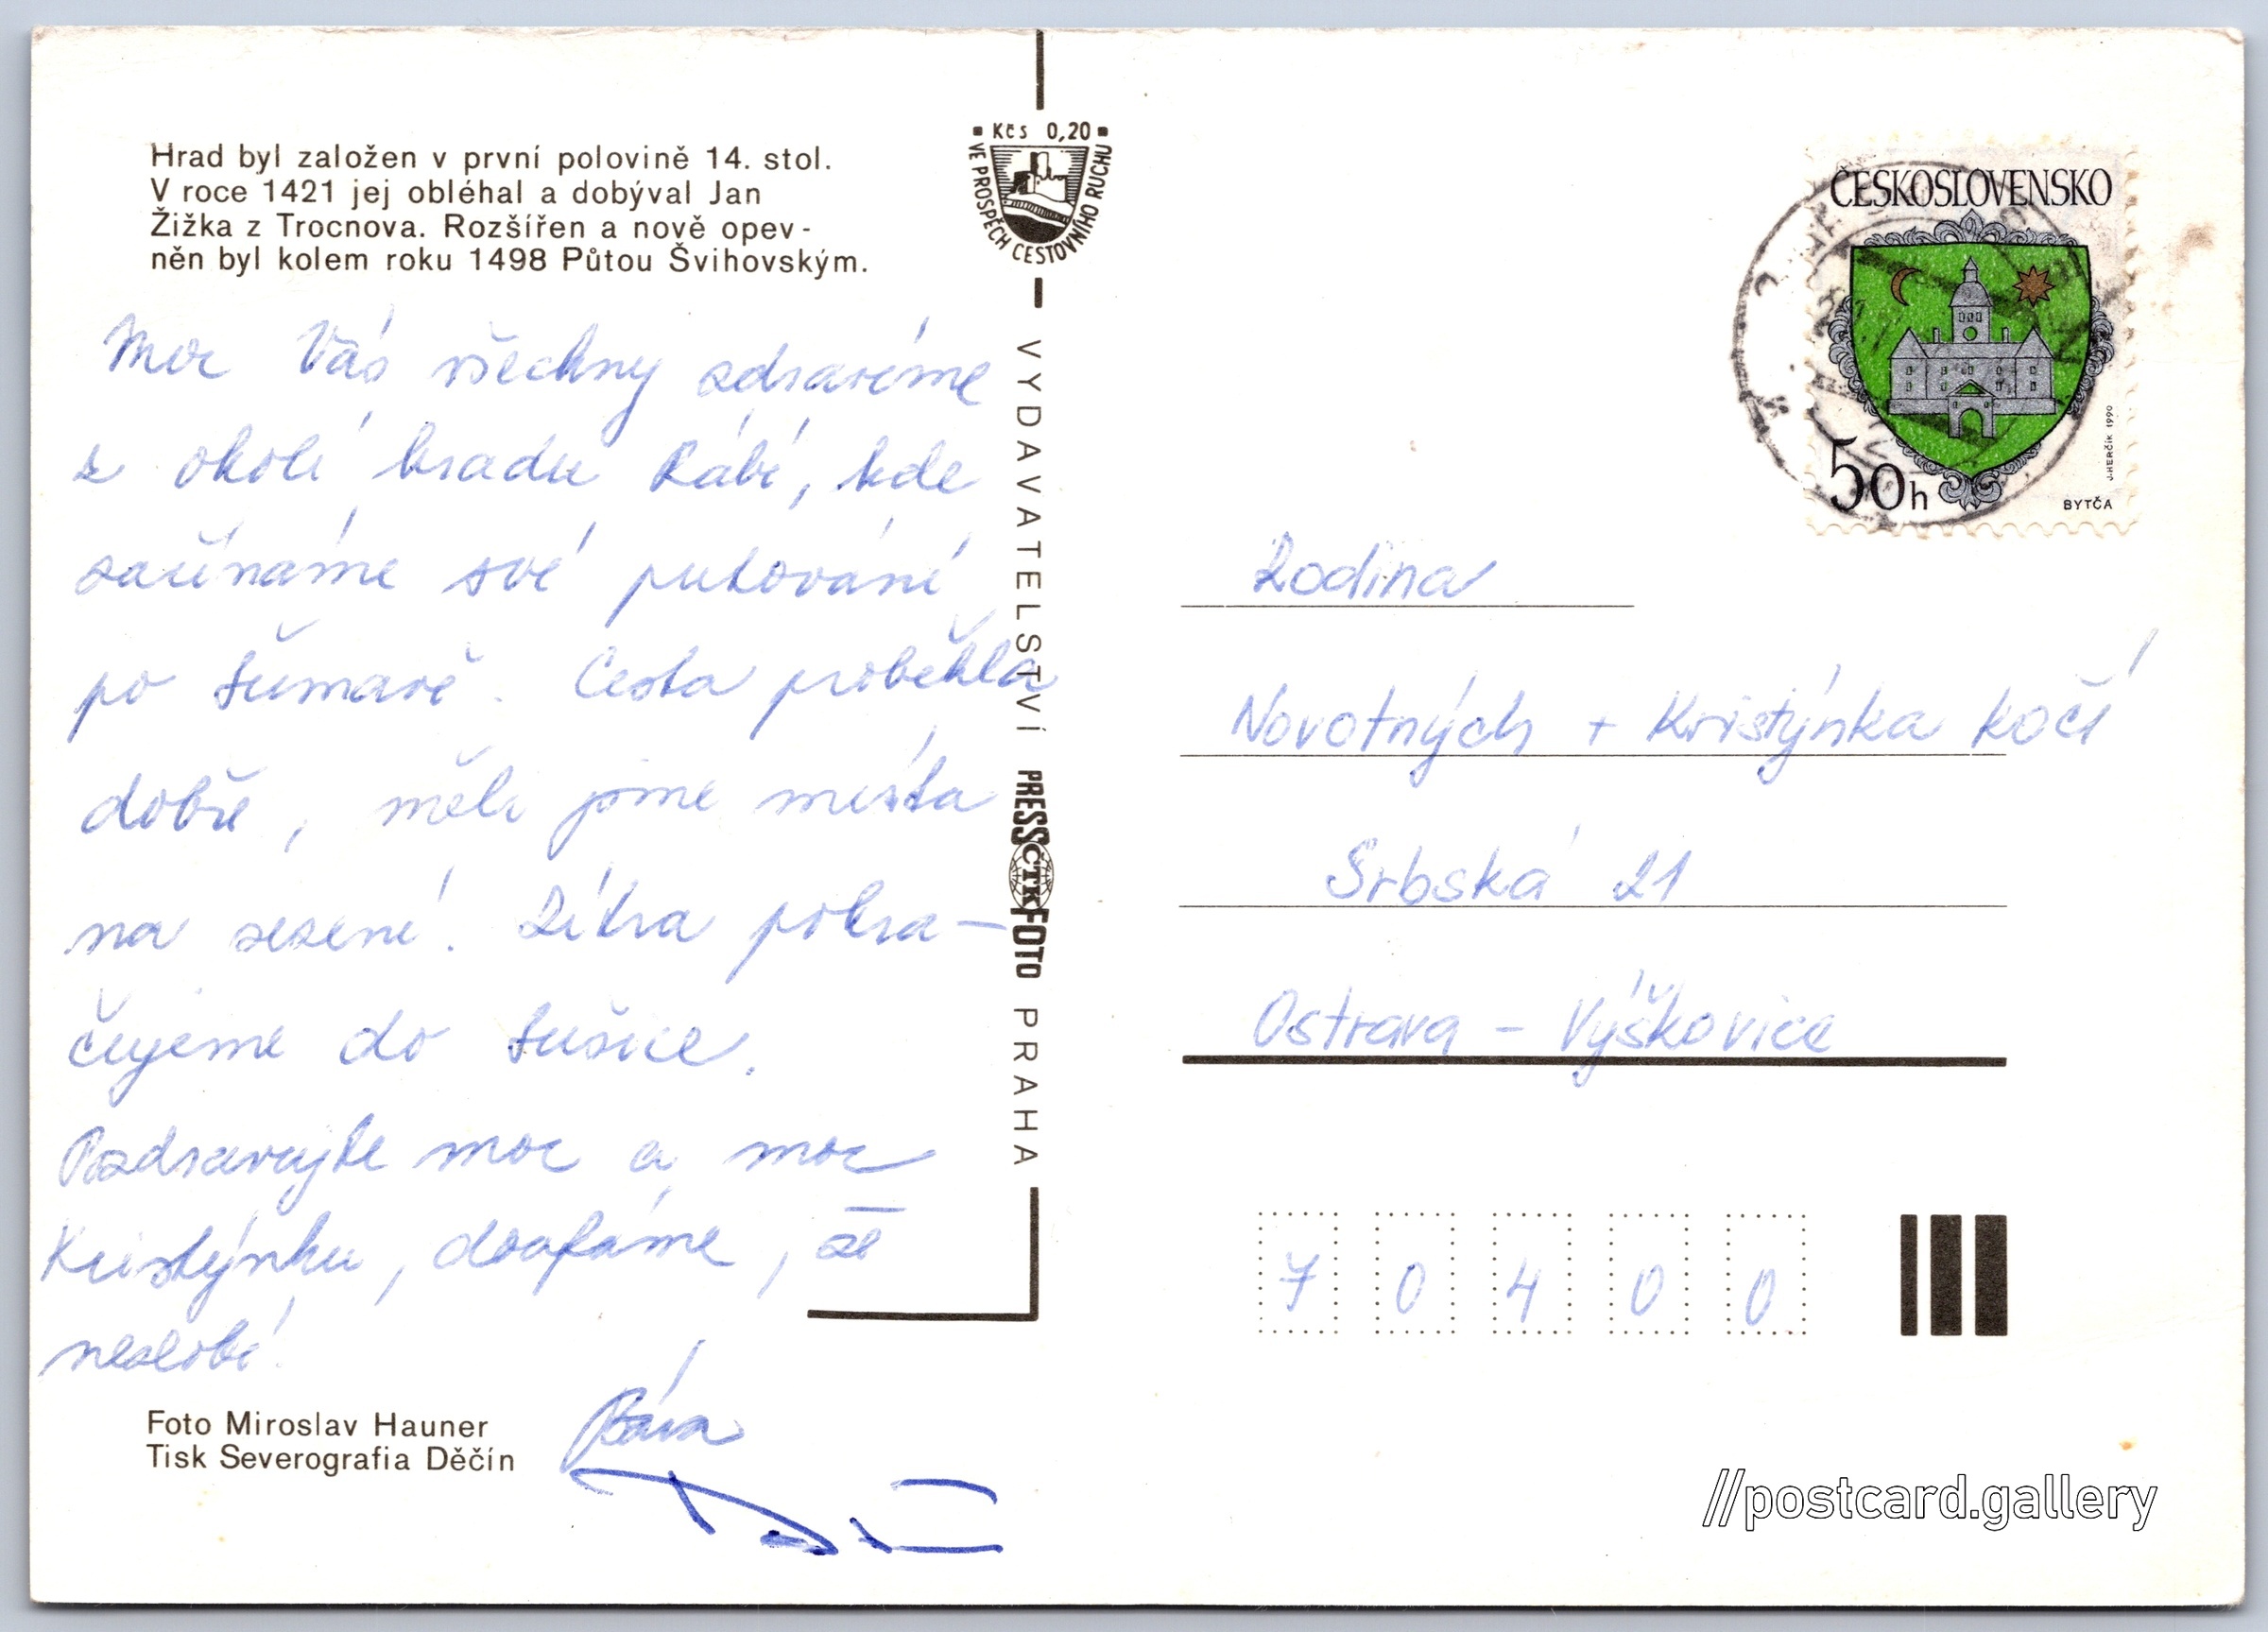 Hrad byl založen v první polovině 14. stol.
V roce 1421 jej obléhal a dobýval Jan
Žižka z Trocnova. Rozšířen a nově opev-
něn byl kolem roku 1498 Půtou Švihovským.
Moc Vás všechny zdravíme
z okolí hradu Rábí, kde
začínáme své putování
po Šumavě. Cesta proběhla
dobře, měli jsme místa
na sezení! Zítra pokra-
čujeme do Sušice.
Pozdravujte moc a moc
Kristýnku, doufáme, že
nezlobí!
Bára
Foto Miroslav Hauner
Tisk Severografia Děčín
Kčs 0,20
VE PROSPĚCH CESTOVNÍHO RUCHU
VYDAVATELSTVÍ PRESSFOTO PRAHA
ČTK
ČESKOSLOVENSKO
50h
BYTČA
J. HERČÍK 1990
Rodina
Novotných + Kristýnka Kočí
Srbská 21
Ostrava - Výškovice
7 0 4 0 0
//postcard.gallery